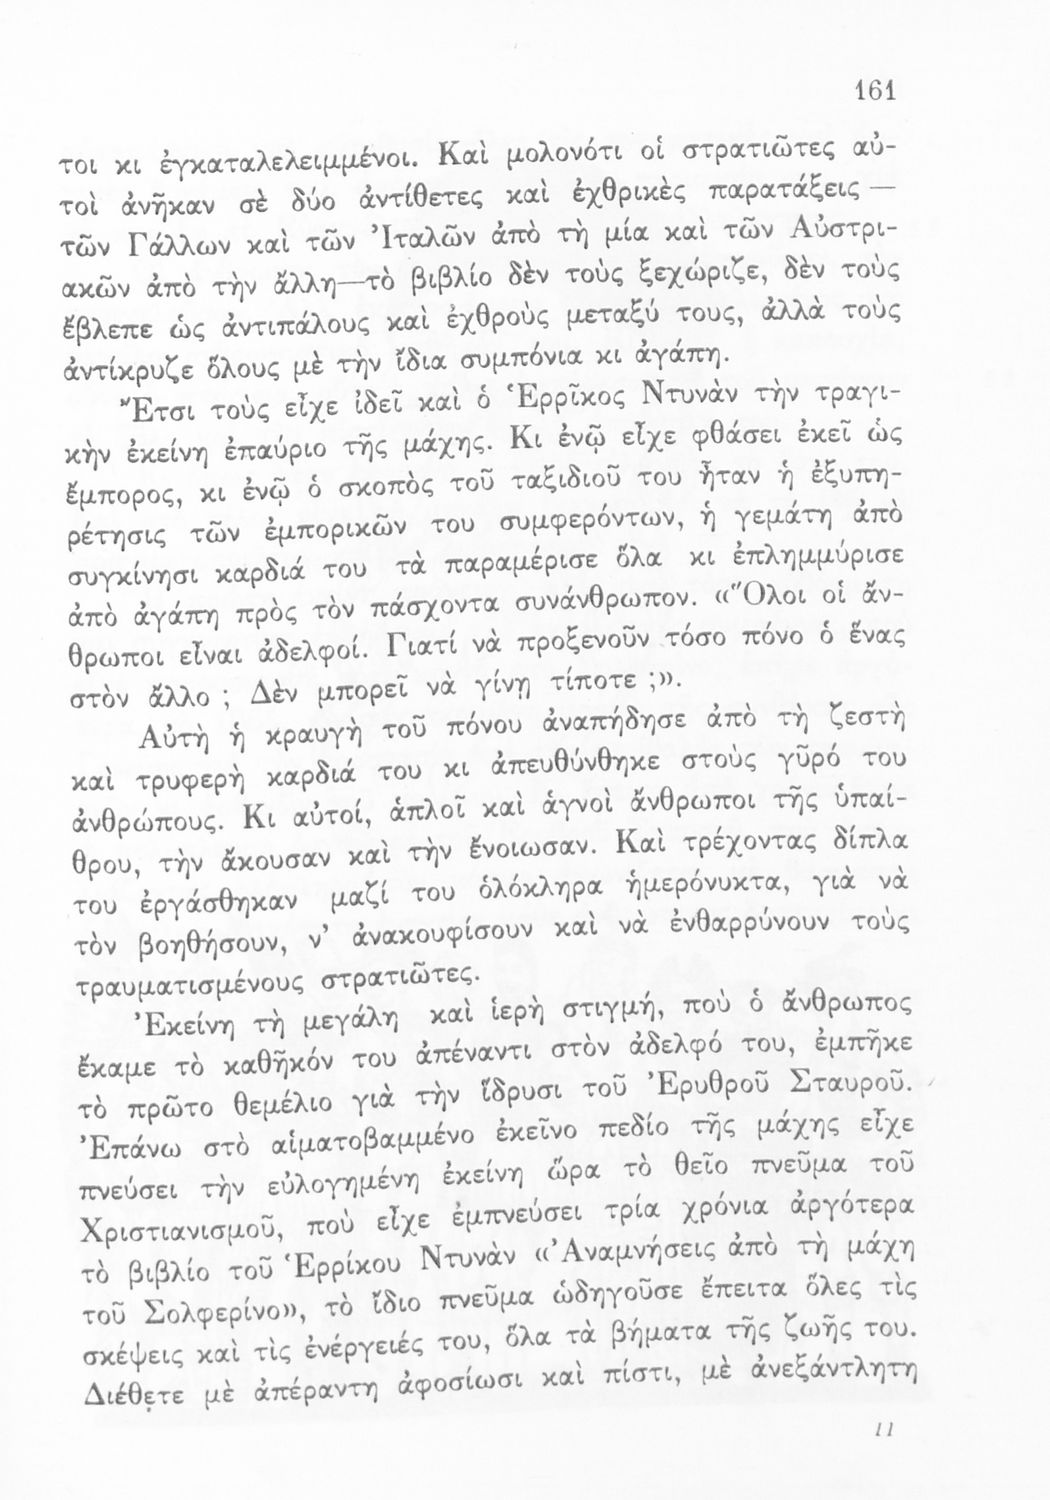 161
τοι κι ἐγκαταλελειμμένοι. Καὶ μολονότι οἱ στρατιῶτες αὐ-
τοὶ ἀνῆκαν σὲ δύο ἀντίθετες καὶ ἐχθρικὲς παρατάξεις —
τῶν Γάλλων καὶ τῶν Ἰταλῶν ἀπὸ τὴ μία καὶ τῶν Αὐστρι-
ακῶν ἀπὸ τὴν ἄλλη—τὸ βιβλίο δὲν τοὺς ξεχώριζε, δὲν τοὺς
ἔβλεπε ὡς ἀντιπάλους καὶ ἐχθροὺς μεταξύ τους, ἀλλὰ τοὺς
ἀντίκρυζε ὅλους μὲ τὴν ἴδια συμπόνια κι ἀγάπη.
Ἔτσι τοὺς εἶχε ἰδεῖ καὶ ὁ Ἑρρῖκος Ντυνὰν τὴν τραγι-
κὴν ἐκείνη ἐπαύριο τῆς μάχης. Κι ἐνῷ εἶχε φθάσει ἐκεῖ ὡς
ἔμπορος, κι ἐνῷ ὁ σκοπὸς τοῦ ταξιδιοῦ του ἦταν ἡ ἐξυπη-
ρέτησις τῶν ἐμπορικῶν του συμφερόντων, ἡ γεμάτη ἀπὸ
συγκίνησι καρδιά του τὰ παραμέρισε ὅλα κι ἐπλημμύρισε
ἀπὸ ἀγάπη πρὸς τὸν πάσχοντα συνάνθρωπον. «Ὅλοι οἱ ἄν-
θρωποι εἶναι ἀδελφοί. Γιατί νὰ προξενοῦν τόσο πόνο ὁ ἕνας
στὸν ἄλλο ; Δὲν μπορεῖ νὰ γίνῃ τίποτε ;».
Αὐτὴ ἡ κραυγὴ τοῦ πόνου ἀναπήδησε ἀπὸ τὴ ζεστὴ
καὶ τρυφερὴ καρδιά του κι ἀπευθύνθηκε στοὺς γῦρό του
ἀνθρώπους. Κι αὐτοί, ἁπλοῖ καὶ ἁγνοὶ ἄνθρωποι τῆς ὑπαί-
θρου, τὴν ἄκουσαν καὶ τὴν ἔνοιωσαν. Καὶ τρέχοντας δίπλα
του ἐργάσθηκαν μαζί του ὁλόκληρα ἡμερόνυκτα, γιὰ νὰ
τὸν βοηθήσουν, ν’ ἀνακουφίσουν καὶ νὰ ἐνθαρρύνουν τοὺς
τραυματισμένους στρατιῶτες.
Ἐκείνη τὴ μεγάλη καὶ ἱερὴ στιγμή, ποὺ ὁ ἄνθρωπος
ἔκαμε τὸ καθῆκόν του ἀπέναντι στὸν ἀδελφό του, ἐμπῆκε
τὸ πρῶτο θεμέλιο γιὰ τὴν ἵδρυσι τοῦ Ἐρυθροῦ Σταυροῦ.
Ἐπάνω στὸ αἱματοβαμμένο ἐκεῖνο πεδίο τῆς μάχης εἶχε
πνεύσει τὴν εὐλογημένη ἐκείνη ὥρα τὸ θεῖο πνεῦμα τοῦ
Χριστιανισμοῦ, ποὺ εἶχε ἐμπνεύσει τρία χρόνια ἀργότερα
τὸ βιβλίο τοῦ Ἑρρίκου Ντυνὰν «Ἀναμνήσεις ἀπὸ τὴ μάχη
τοῦ Σολφερίνο», τὸ ἴδιο πνεῦμα ὡδηγοῦσε ἔπειτα ὅλες τὶς
σκέψεις καὶ τὶς ἐνέργειές του, ὅλα τὰ βήματα τῆς ζωῆς του.
Διέθετε μὲ ἀπέραντη ἀφοσίωσι καὶ πίστι, μὲ ἀνεξάντλητη
11